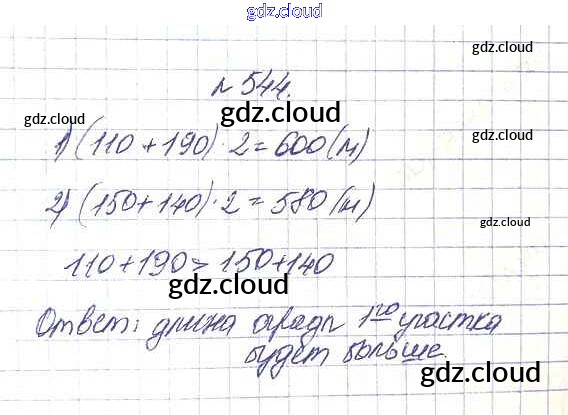 gdz.cloud
gdz.cloud
№ 544.
gdz.cloud
gdz.cloud
1) (110 + 190) · 2 = 600 (м)
gdz.cloud
2) (150 + 140) · 2 = 580 (м)
gdz.cloud
gdz.cloud
110 + 190 > 150 + 140
gdz.cloud
gdz.cloud
Ответ: длина оградп 1го участка
будет больше.
gdz.cloud